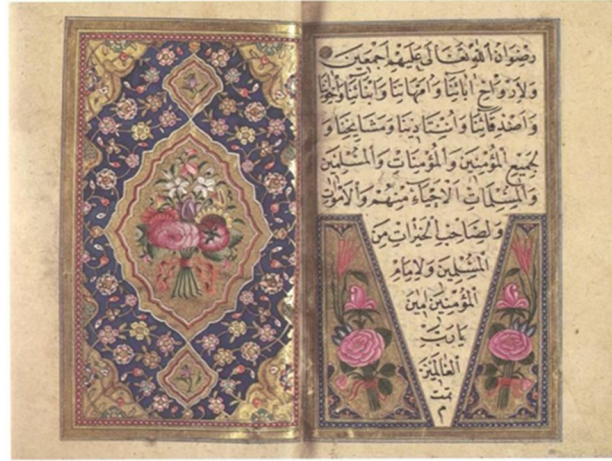 رِضْوَانُ اللّٰهِ تَعَالَى عَلَيْهِمْ اَجْمَعِينَ
وَلِاَرْوَاحِ اٰبَائِنَا وَاُمَّهَاتِنَا وَاَبْنَائِنَا وَاِخْوَانِنَا
وَاَصْدِقَائِنَا وَاُسْتَادِنَا وَمَشَايِخِنَا وَ
لِجَمِيعِ الْمُؤْمِنِينَ وَالْمُؤْمِنَاتِ وَالْمُسْلِمِينَ
وَالْمُسْلِمَاتِ الْاَحْيَاءِ مِنْهُمْ وَالْاَمْوَاتِ
وَلِصَاحِبِ الْخَيْرَاتِ مِنَ
الْمُسْلِمِينَ وَلِاِمَامِ
الْمُؤْمِنِينَ اٰمِينَ
يَارَبَّ
الْعَالَمِينَ
تمت
م